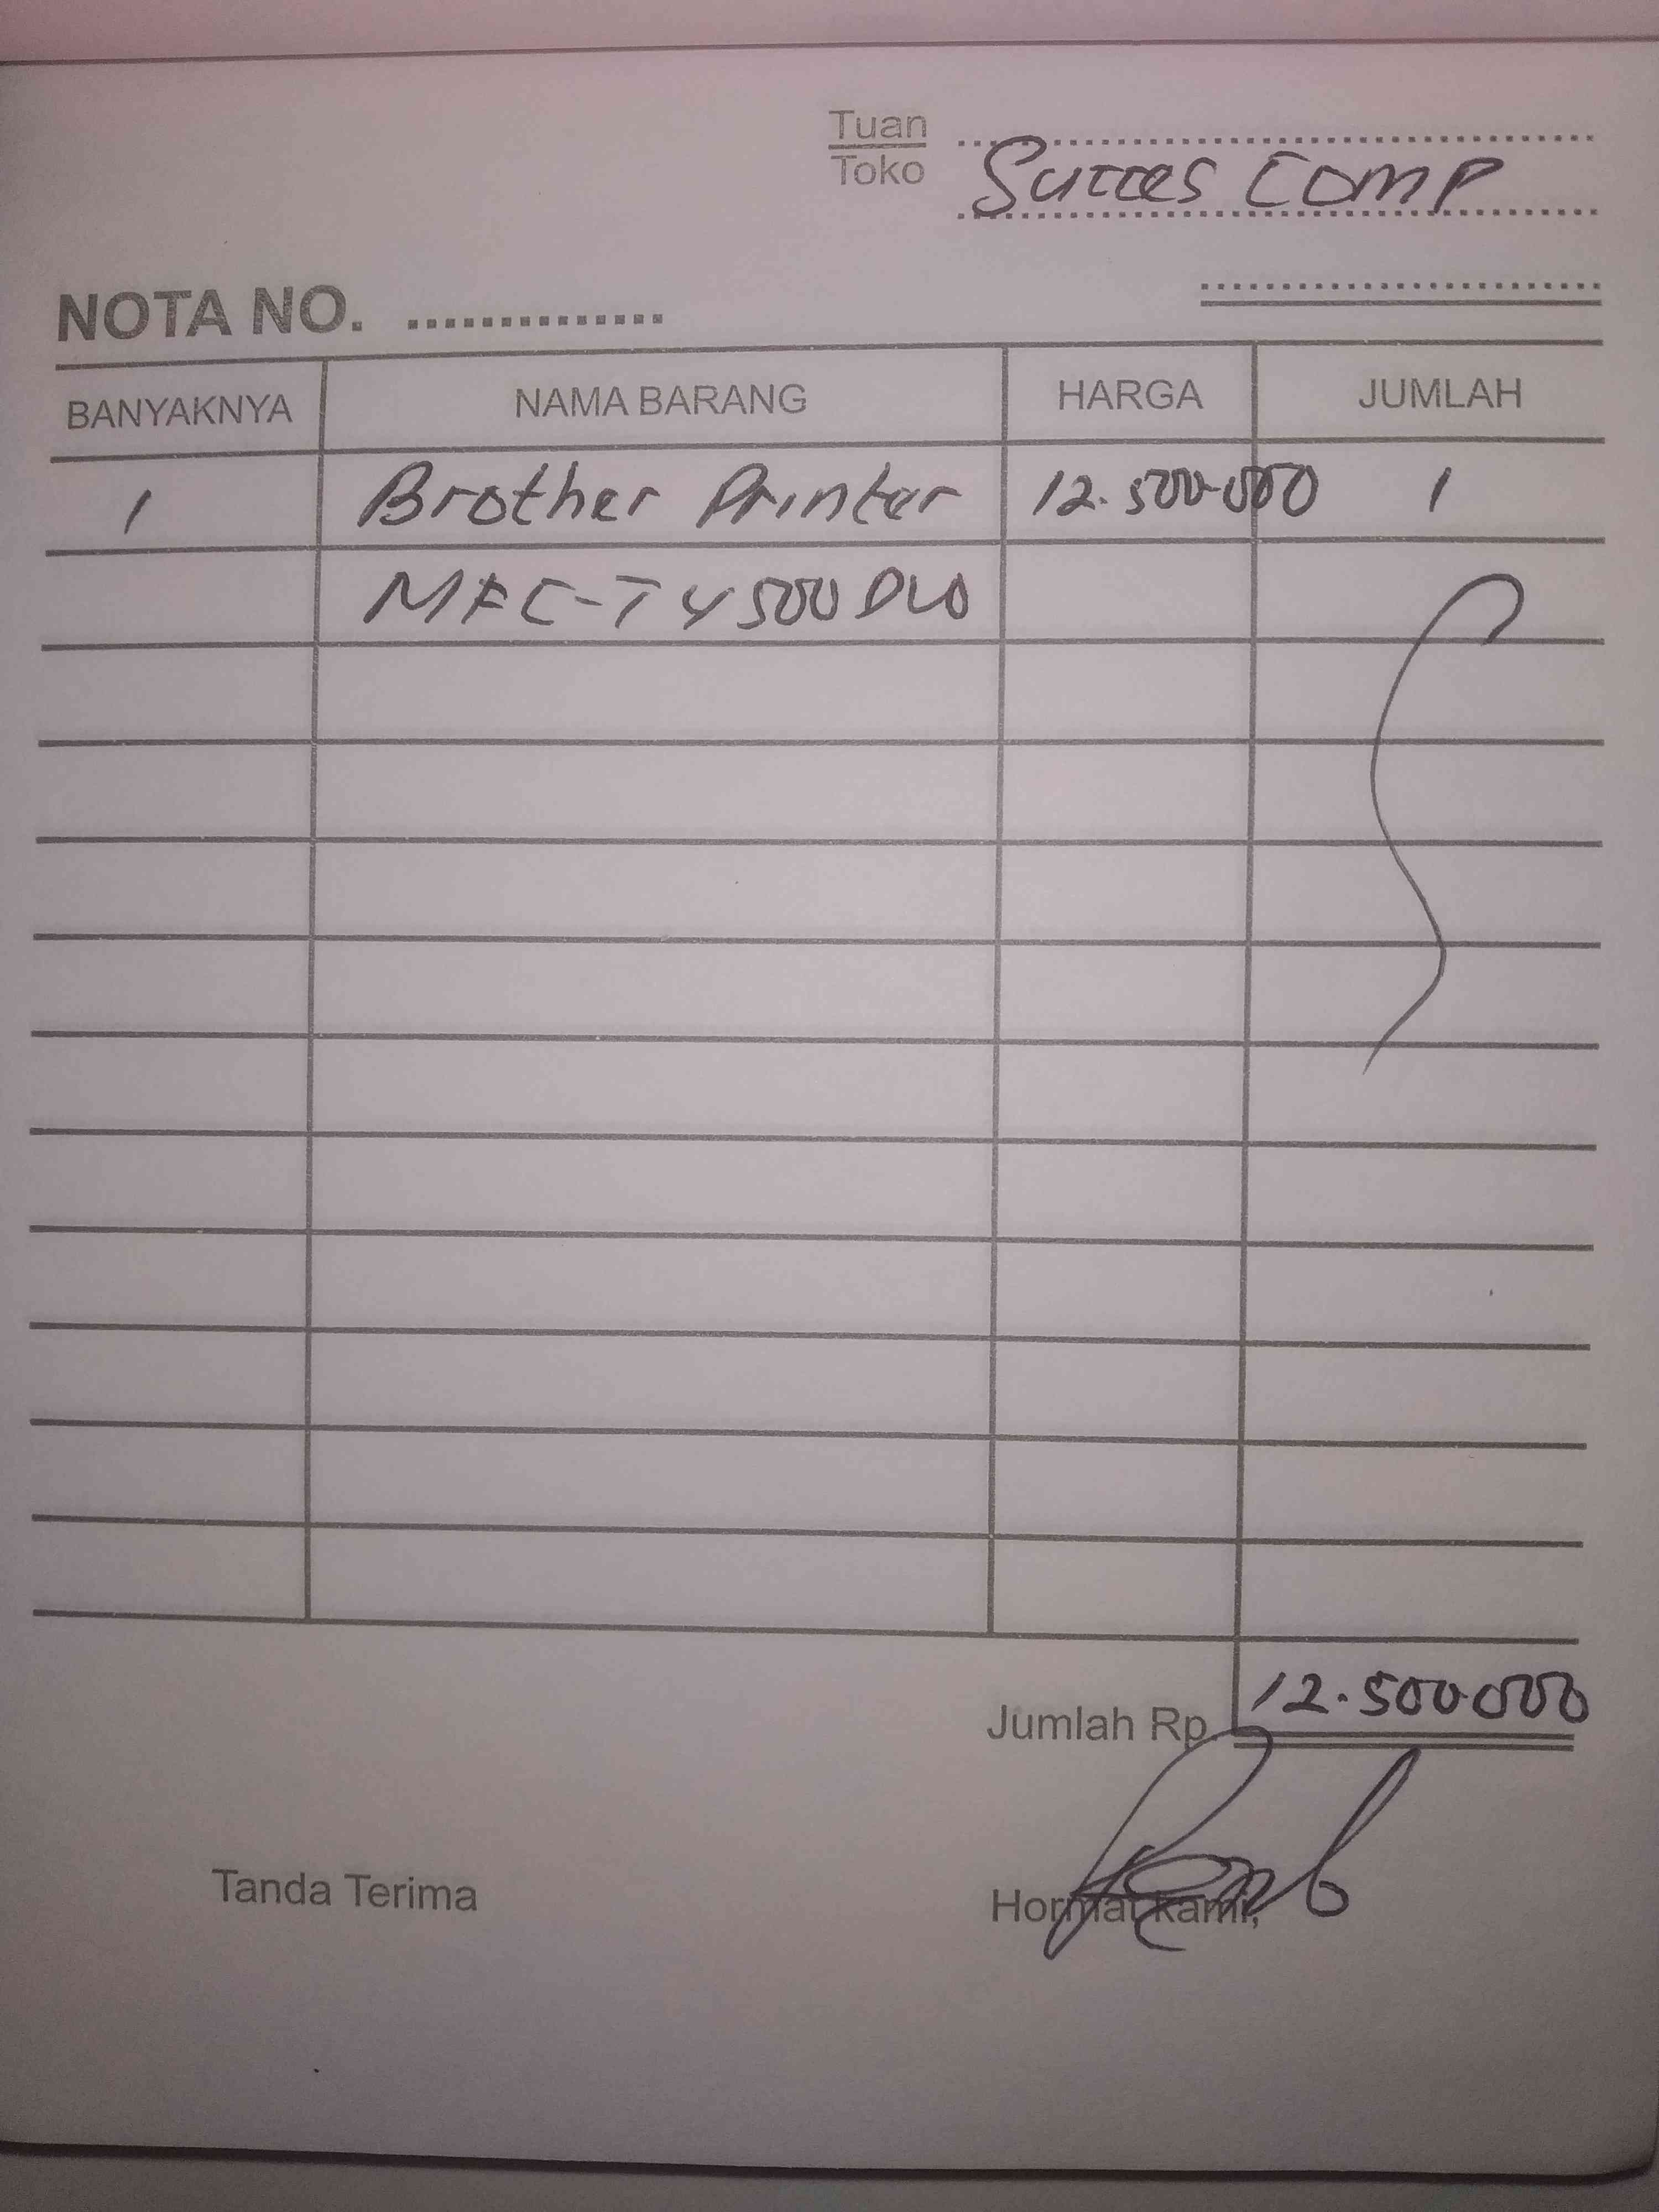 Tuan
Toko
Succes Comp
NOTA NO. ..............
BANYAKNYA NAMA BARANG HARGA JUMLAH
1 Brother Printer 12.500.000 1
MFC-T4500DW
Jumlah Rp 12.500.000
Tanda Terima Hormat kami,